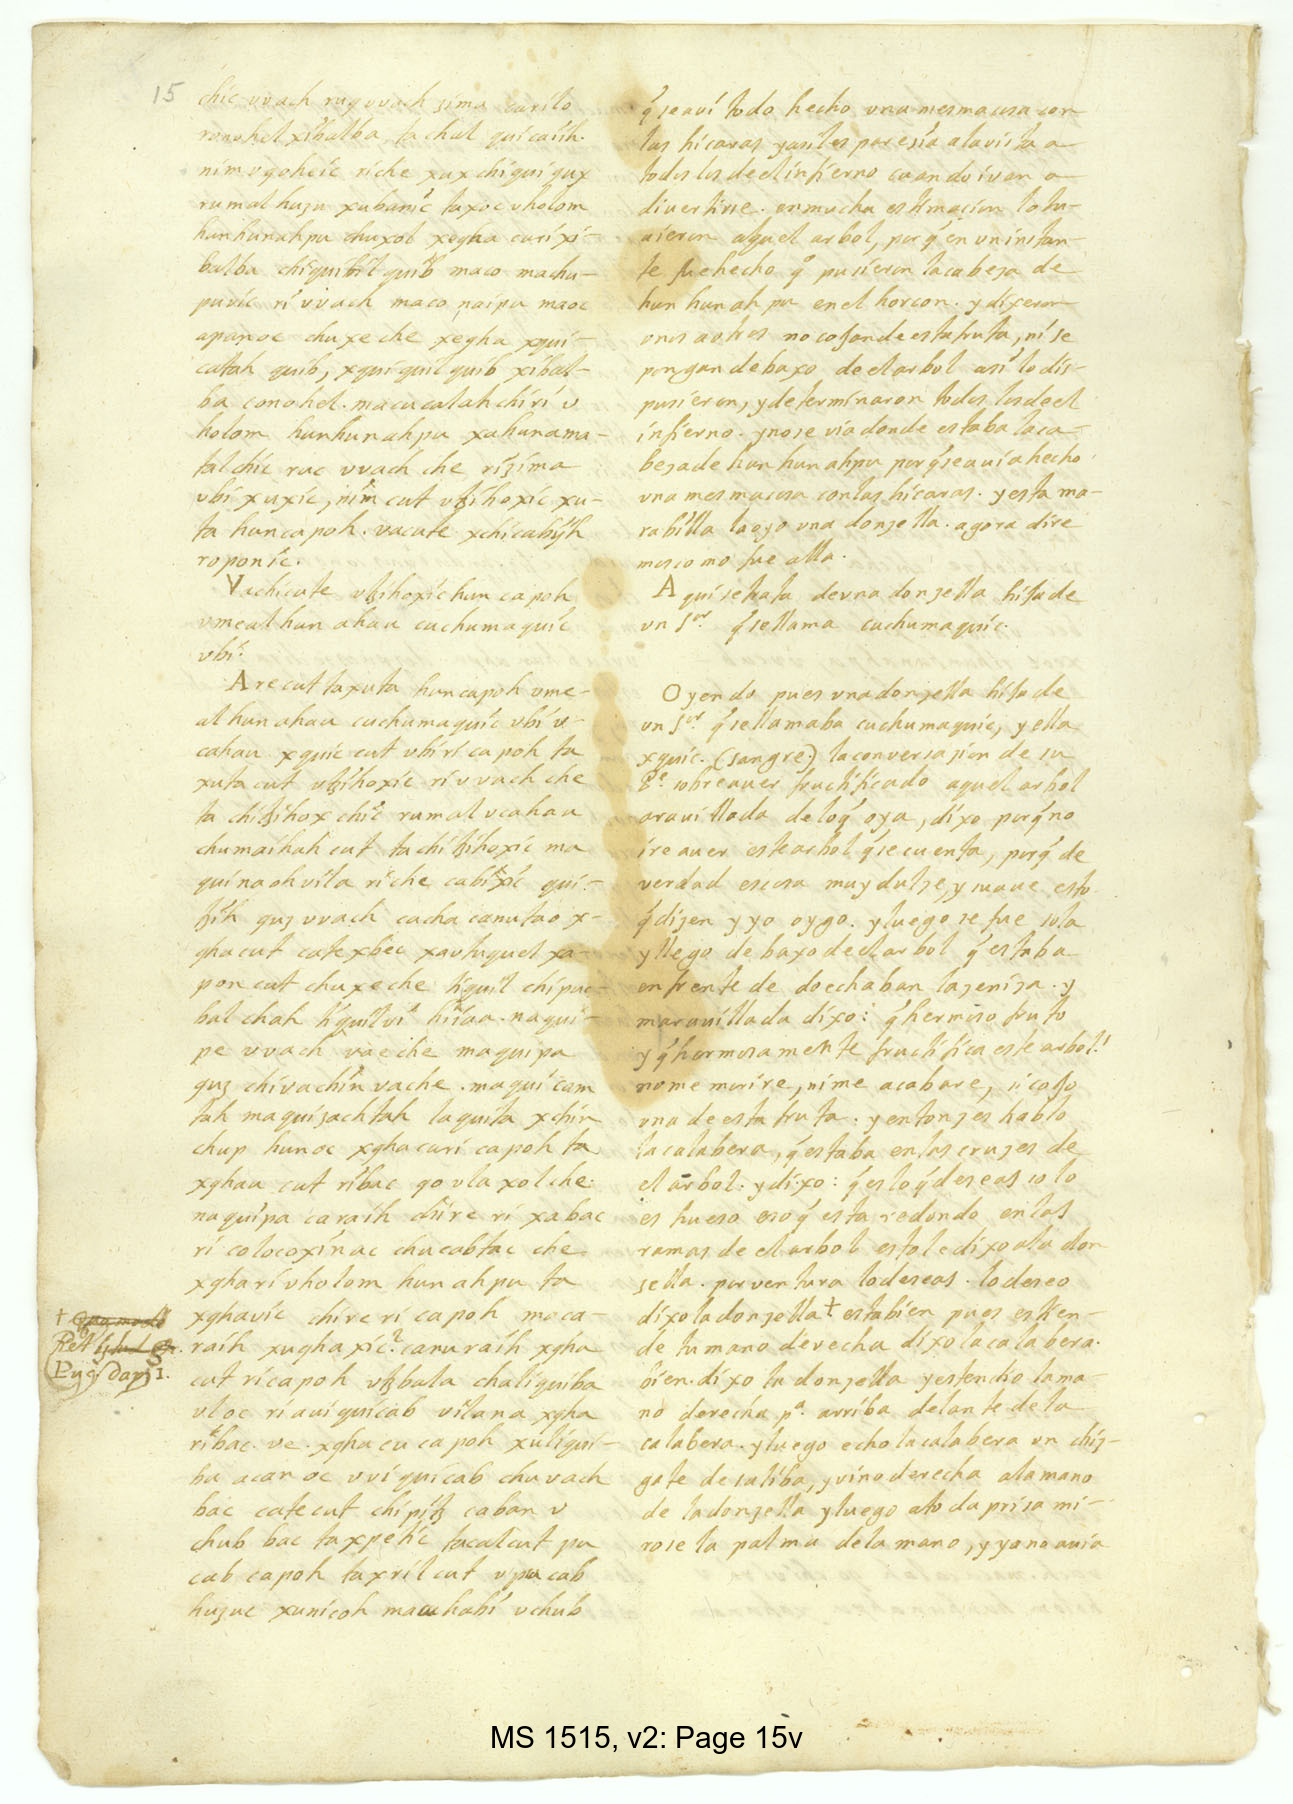 15
chic uvach ruq uvach zima carilo
ronohel xibalba, ta chul quicaijh.
nim ugoheic riche xux chiquiqux
rumal huzu xubanic taxoc uholom
hunhunahpu chuxol xegha curi xi-
balba chiquibil quib maco machu-
puvic ri uvach maco naipu maoc
apanoc chuxe che xegha xqui-
catah quib, xquiquil quib xibal-
ba conohel. macucalah chiri u
holom hunhunahpu xahunama-
tal chic ruc uvach che ri zima
ubi xuxic, nim cut utzihoxic xu-
ta huncapoh. vacute xchicabijh
roponic.
Vachicute utzihoxic hun capoh
umeal hun ahau cuchumaquic
ubi.
Arecut taxuta huncapoh ume-
al hun ahau cuchumaquic ubi u-
cahau xquic cut ubi ri capoh ta
xuta cut utzihoxic ri uvach che
ta chitzihox chic rumal ucahau
chumaihah cut ta chitzihoxic ma
quinaoh vila ri che cabixic qui-
tzih quz uvach cacha canutao x-
gha cut catexbec xautuquel xa-
pon cut chuxe che tiquil chi puc-
bal chah tiquil vi hiiaa. naqui-
pe uvach vae che maquipa
quz chivachin vache. maquicam
tah maquizachtah laquita xchin
chup hunoc xgha curi capoh ta
xghau cut ri bac go ula xol che.
naquipa caraih chire ri xa bac
ri colocoxinac chucabtac che
xgha ri uholom hunahpu ta
xghavic chire ri capoh moca-
raih xughaxic. canuraih xgha
cut ri capoh utzbala chaliquiba
uloc ri auiquicab vilana xgha
ri bac. ve. xgha cu capoh xuliqui-
ba acanoc uviquicab chuvach
bac catecut chipitz caban u
chub bac taxpetic tacalcut pu
cab capoh taxril cut upu cab
huzuc xunicoh macuhabi uchub
q̃ se aví todo hecho una mesma cosa con
las hicaras yasiles paresia alavista a
todos los de el infierno cuando ivan a
divertirse. en mucha estimacion lo tu-
uieron aquel arbol, porq̃ en uninstan-
te fue hecho q̃ pusieron lacabeza de
hun hunahpu en el horcon. y dixeron
unos aotros no cojan de esta fruta, ni se
pongan debaxo de el arbol asi lo dis-
pusieron, y determinaron todos los de el
infierno. ynose via donde estaba laca-
beza de hun hunahpu porq̃ se avia hecho
una mesmacosa con las hicaras. y esta ma-
rabilla laoyo una donzella. agora dire
mos como fue alla.
Aqui se trata de una donzella hija de
un Sor. q̃ se llama cuchumaquic.
Oyendo pues una donzella hija de
un Sor. q̃ se llamaba cuchumaquic, y ella
xquic. (sangre.) la conversazion de su
Pe. sobre auer fructificado aquel arbol
arauillada de lo q̃ oya, dixo porq̃ no
ire a uer este arbol q̃ se cuenta, porq̃ de
verdad es cosa muy dulze, y suaue esto
q̃ dizen y yo oygo. y luego se fue sola
y llego de baxo de el arbol q̃ estaba
en frente de do echaban la zeniza. y
marauillada dixo: q̃ hermoso fruto
y q̃ hermosamente fructifica este arbol!
no me morire, ni me acabare, si cojo
una de esta fruta. y entonzes hablo
la calabera, q̃ estaba en las cruzes de
el arbol. y dixo: q̃ es lo q̃ deseas solo
es hueso eso q̃ esta redondo en las
ramas de el arbol esto le dixo ala don
zella. por ventura lo deseas. lo deseo
dixo la donzella † esta bien pues estien-
de tu mano derecha dixo la calabera.
bien. dixo la donzella y estendio la ma-
no derecha pa. arriba delante de la
calabera. y luego echo la calabera un chiz-
gate de saliba, y vino derecha a la mano
de la donzella y luego a toda prisa mi-
rose la palma de la mano, y ya no auia